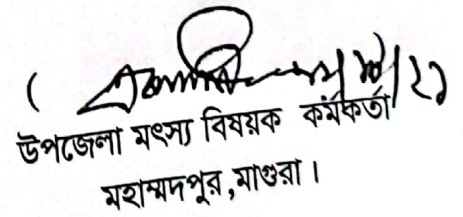 উপজেলা মৎস্য বিষয়ক কর্মকর্তা
মহাম্মদপুর,মাগুরা।